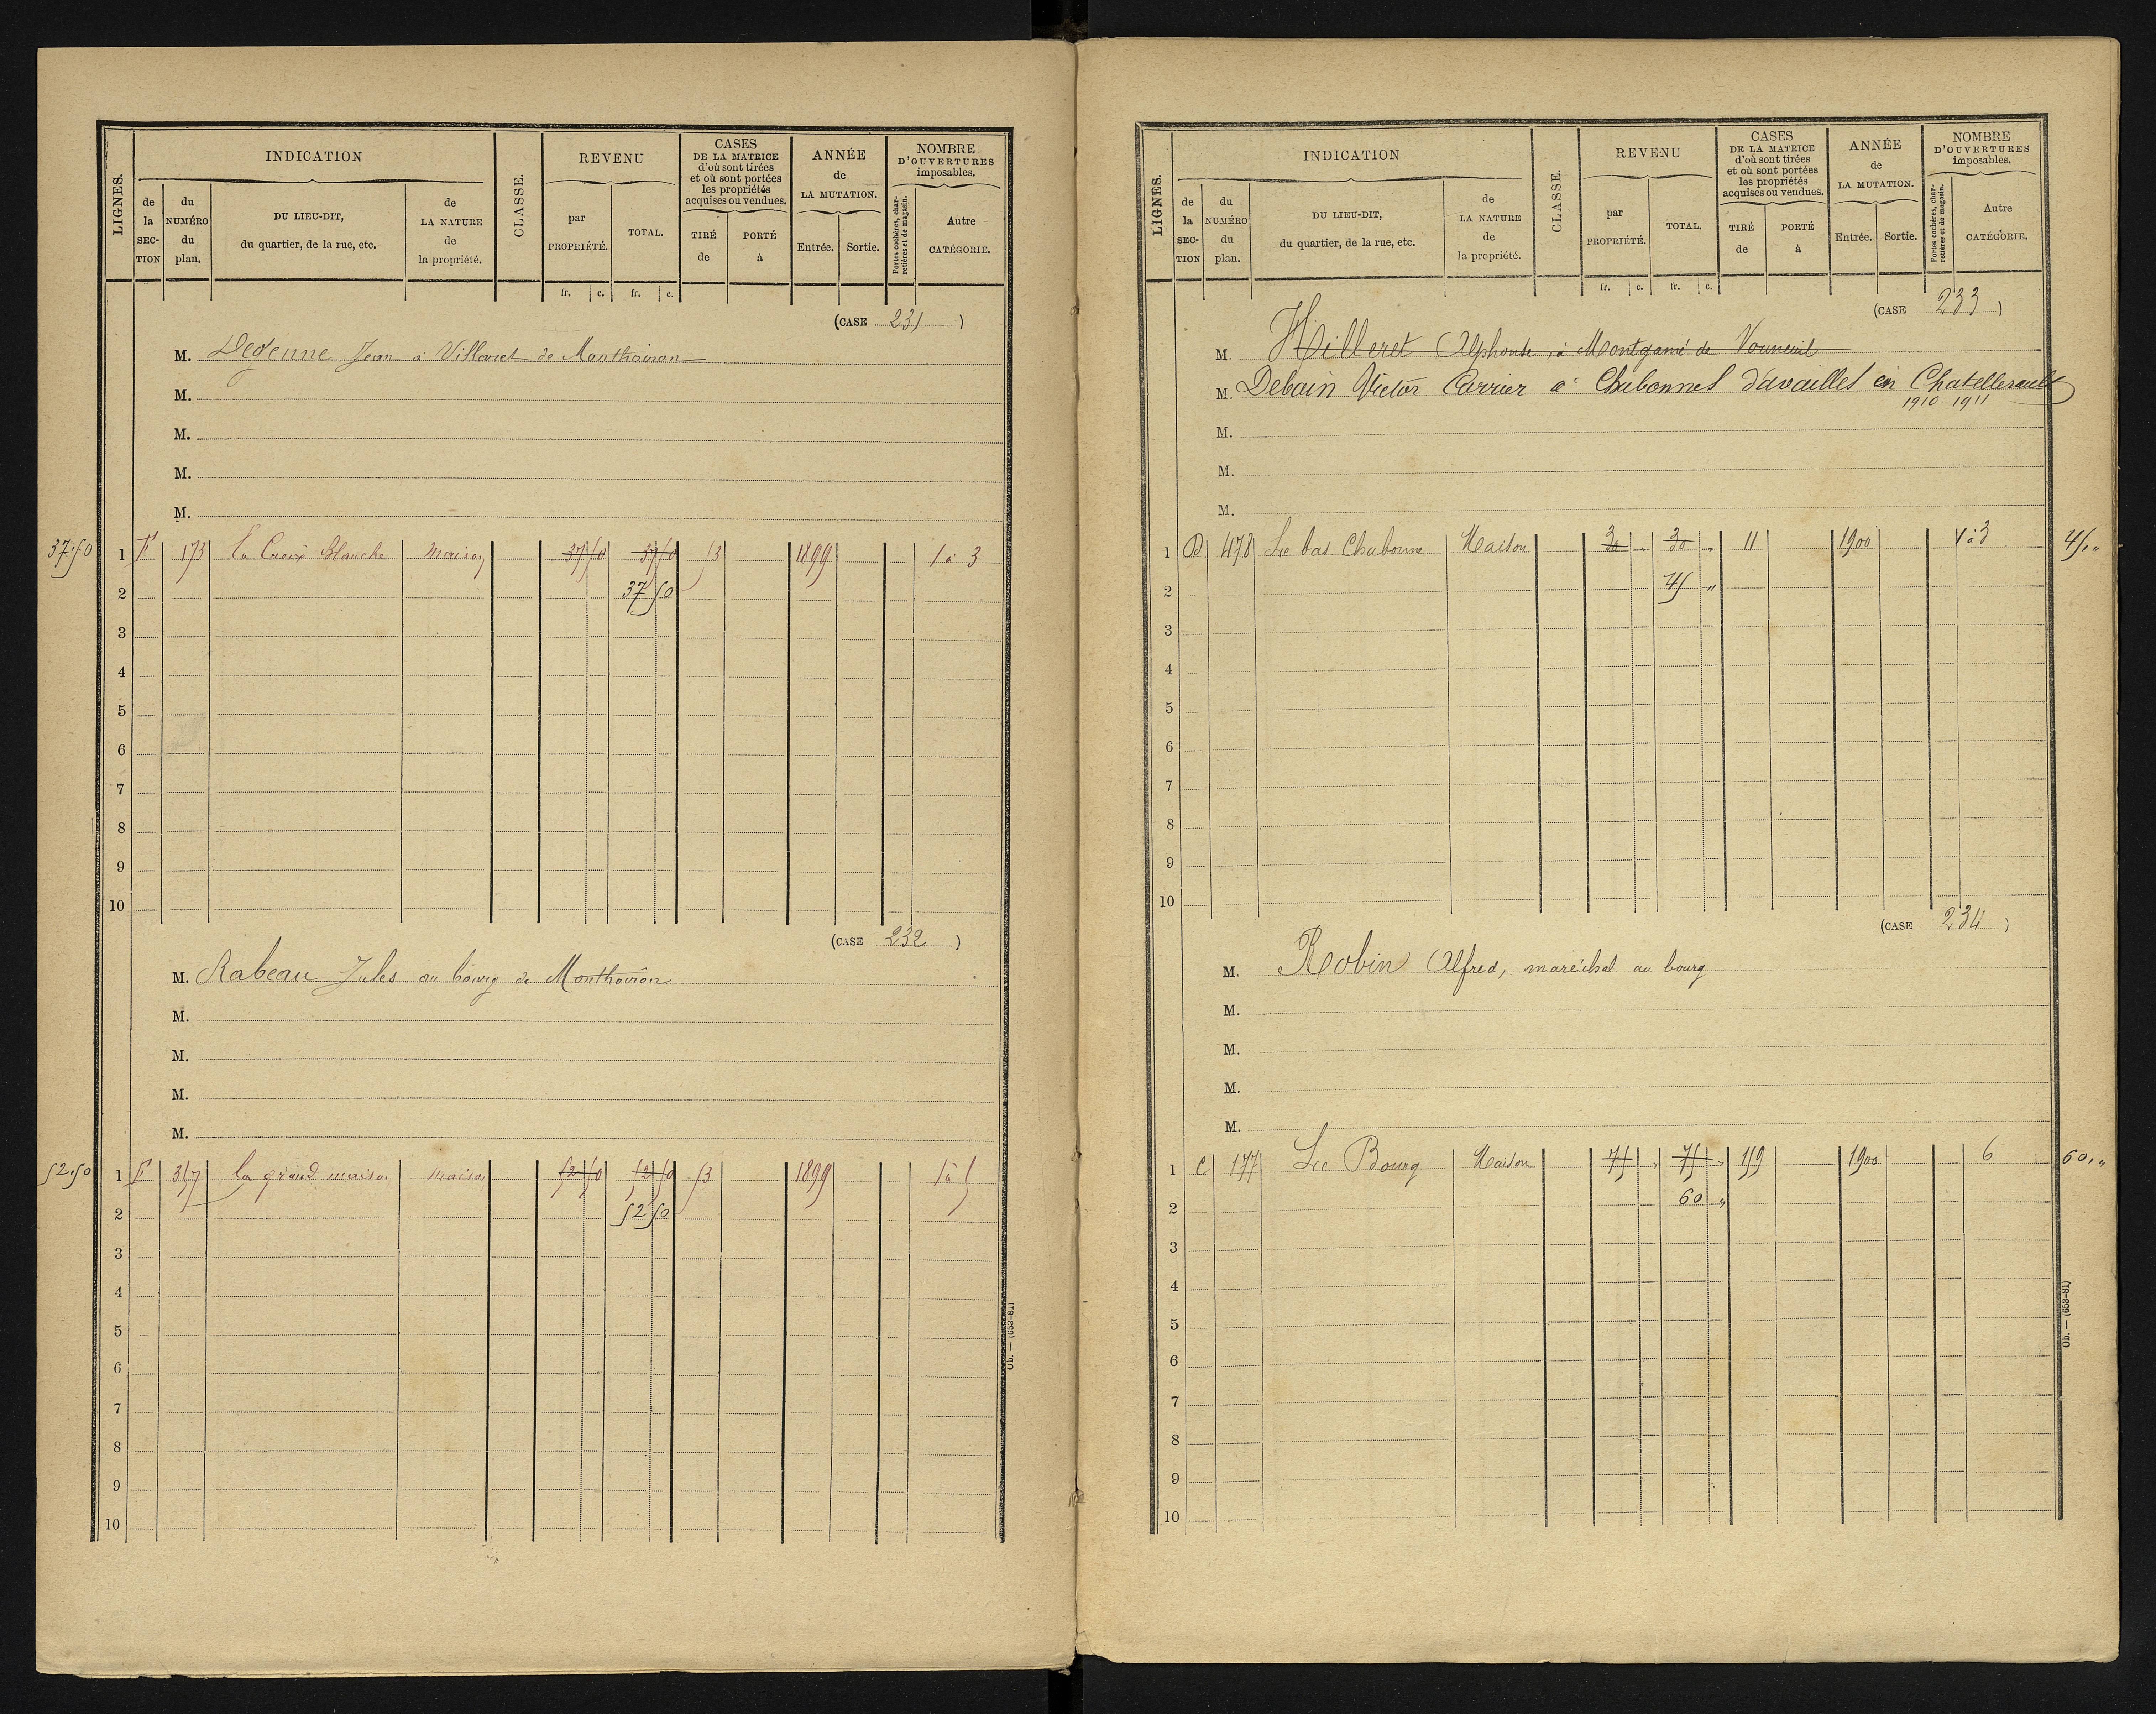 LIGNES.
INDICATION
de la SECTION
du NUMÉRO du plan.
DU LIEU-DIT, du quartier, de la rue, etc.
de LA NATURE de la propriété.
CLASSE.
REVENU
par PROPRIÉTÉ.
TOTAL.
CASES DE LA MATRICE d'où sont tirées et où sont portées les propriétés acquises ou vendues.
TIRÉ de
PORTÉ à
ANNÉE de LA MUTATION.
Entrée.
Sortie.
NOMBRE D'OUVERTURES imposables.
Portes cochères, charretières et de magasin.
Autre CATÉGORIE.
fr. c. fr. c.
(CASE 231)
M. Degenne Jean à Villaret de Monthoiron
M.
M.
M.
M.
37.50 1 F 173 La Croix Blanche maison 37 50 37 50 13 1899 1 à 3
2 37 50
3
4
5
6
7
8
9
10
(CASE 232)
M. Rabeau Jules au bourg de Monthoiron
M.
M.
M.
M.
52.50 1 F 317 la grand maison maison 52 50 52 50 53 1899 1 à 5
2 52 50
3
4
5
6
7
8
9
10
Ob. — (653-81)
LIGNES.
INDICATION
de la SECTION
du NUMÉRO du plan.
DU LIEU-DIT, du quartier, de la rue, etc.
de LA NATURE de la propriété.
CLASSE.
REVENU
par PROPRIÉTÉ.
TOTAL.
CASES DE LA MATRICE d'où sont tirées et où sont portées les propriétés acquises ou vendues.
TIRÉ de
PORTÉ à
ANNÉE de LA MUTATION.
Entrée.
Sortie.
NOMBRE D'OUVERTURES imposables.
Portes cochères, charretières et de magasin.
Autre CATÉGORIE.
fr. c. fr. c.
(CASE 233)
M. Hilleret Alphonse, à Montgamé de Vouneuil
M. Debain Victor Carrier à Chabonnes d'availles en Chatellerault
1910. 1911
M.
M.
M.
1 D 478 Le bas Chabonne Maison 30 " 30 " 11 1900 1 à 3 45, "
2 45 "
3
4
5
6
7
8
9
10
(CASE 234)
M. Robin Alfred, maréchal au bourg
M.
M.
M.
M.
1 C 177 Le Bourg Maison 75 " 75 " 119 1900 6 60, "
2 60 "
3
4
5
6
7
8
9
10
Ob. — (653-81)